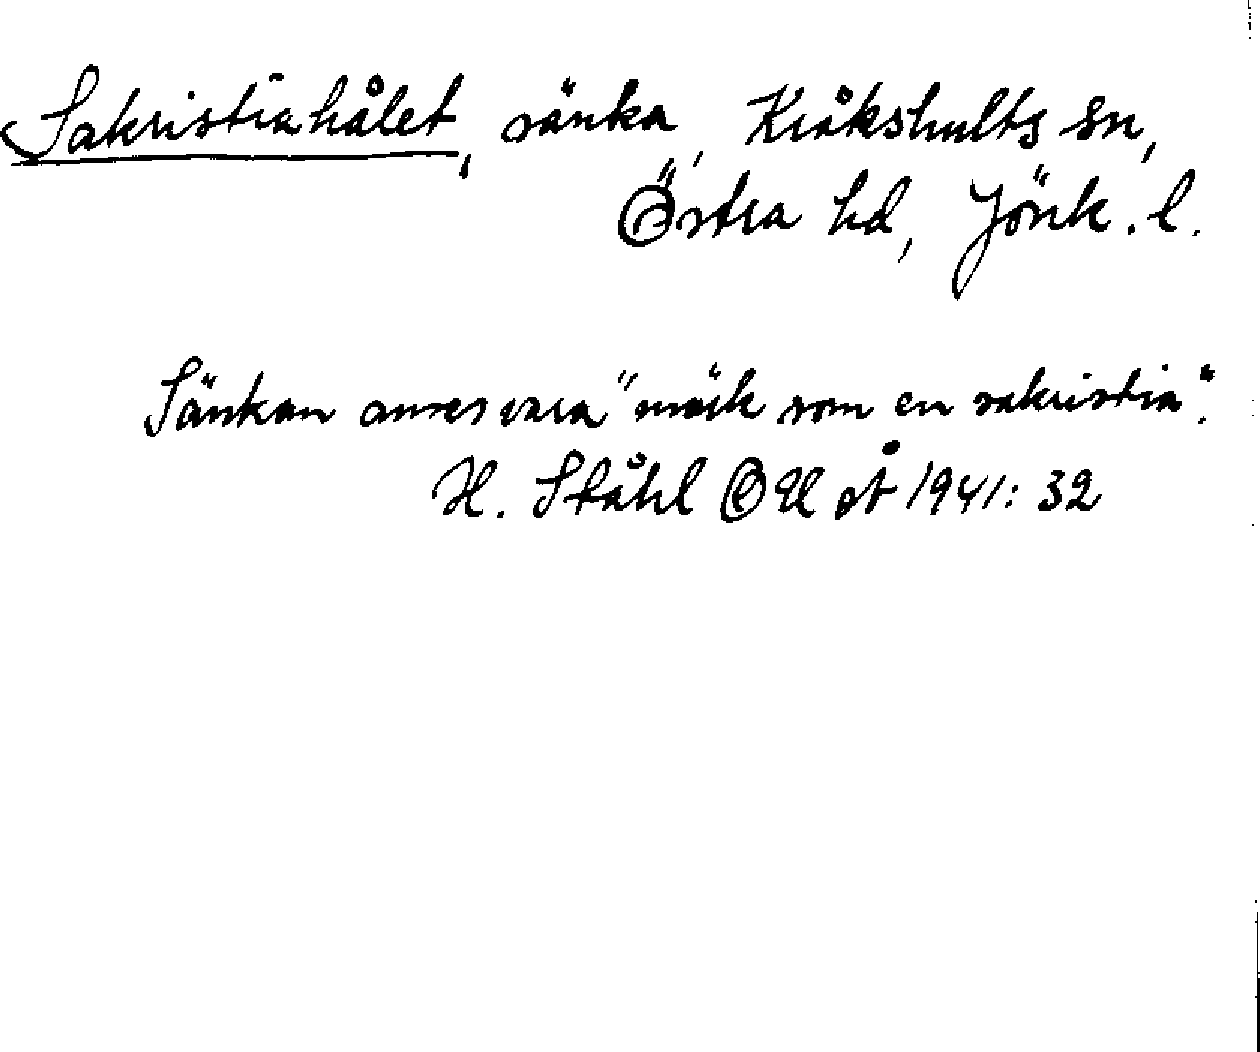 Sakristiahålet, sänka, Kråkshults sn,
Östra hd, Jönk. l.
Sänkan anses vara "mörk som en sakristia".
H. Ståhl OUÅ 1941: 32